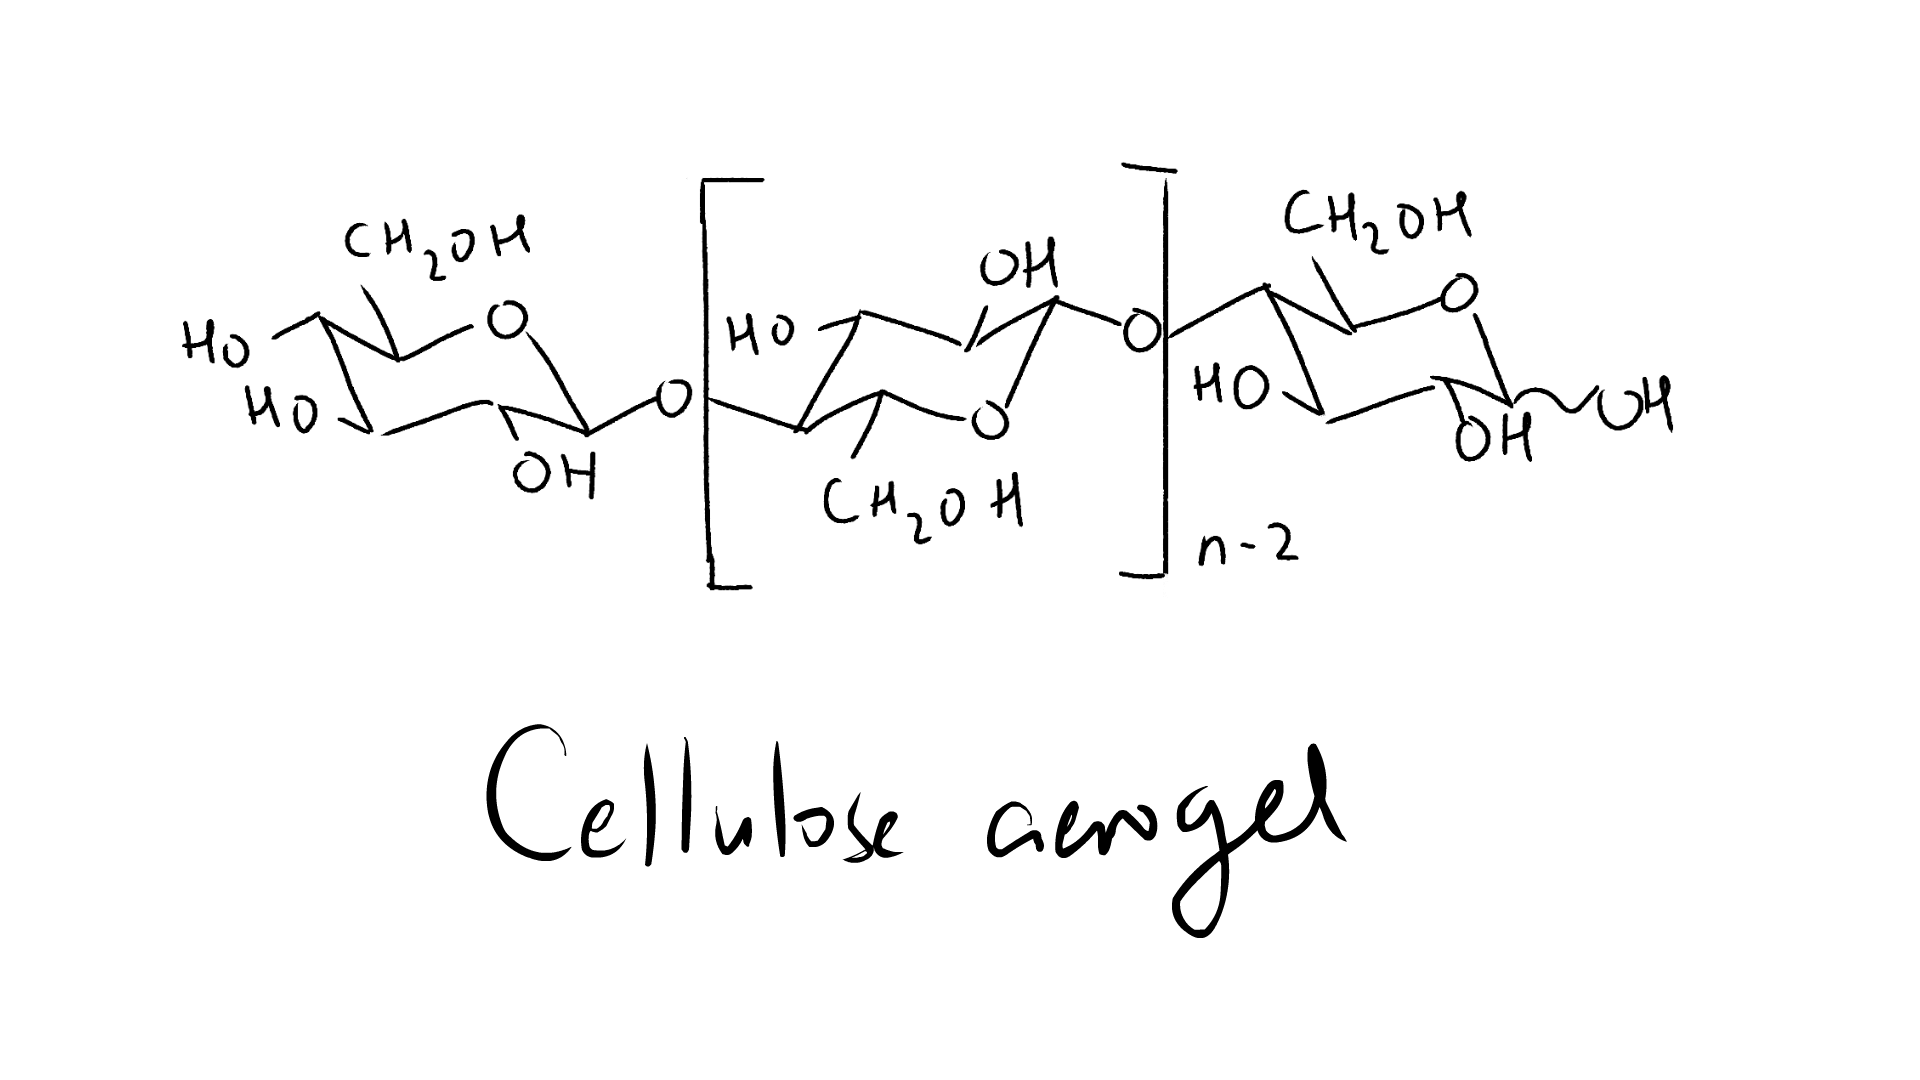 CH2OH
HO
O
HO
OH
O
HO
OH
O
CH2OH
O
CH2OH
O
HO
OH
OH
n-2
Cellulose aerogel